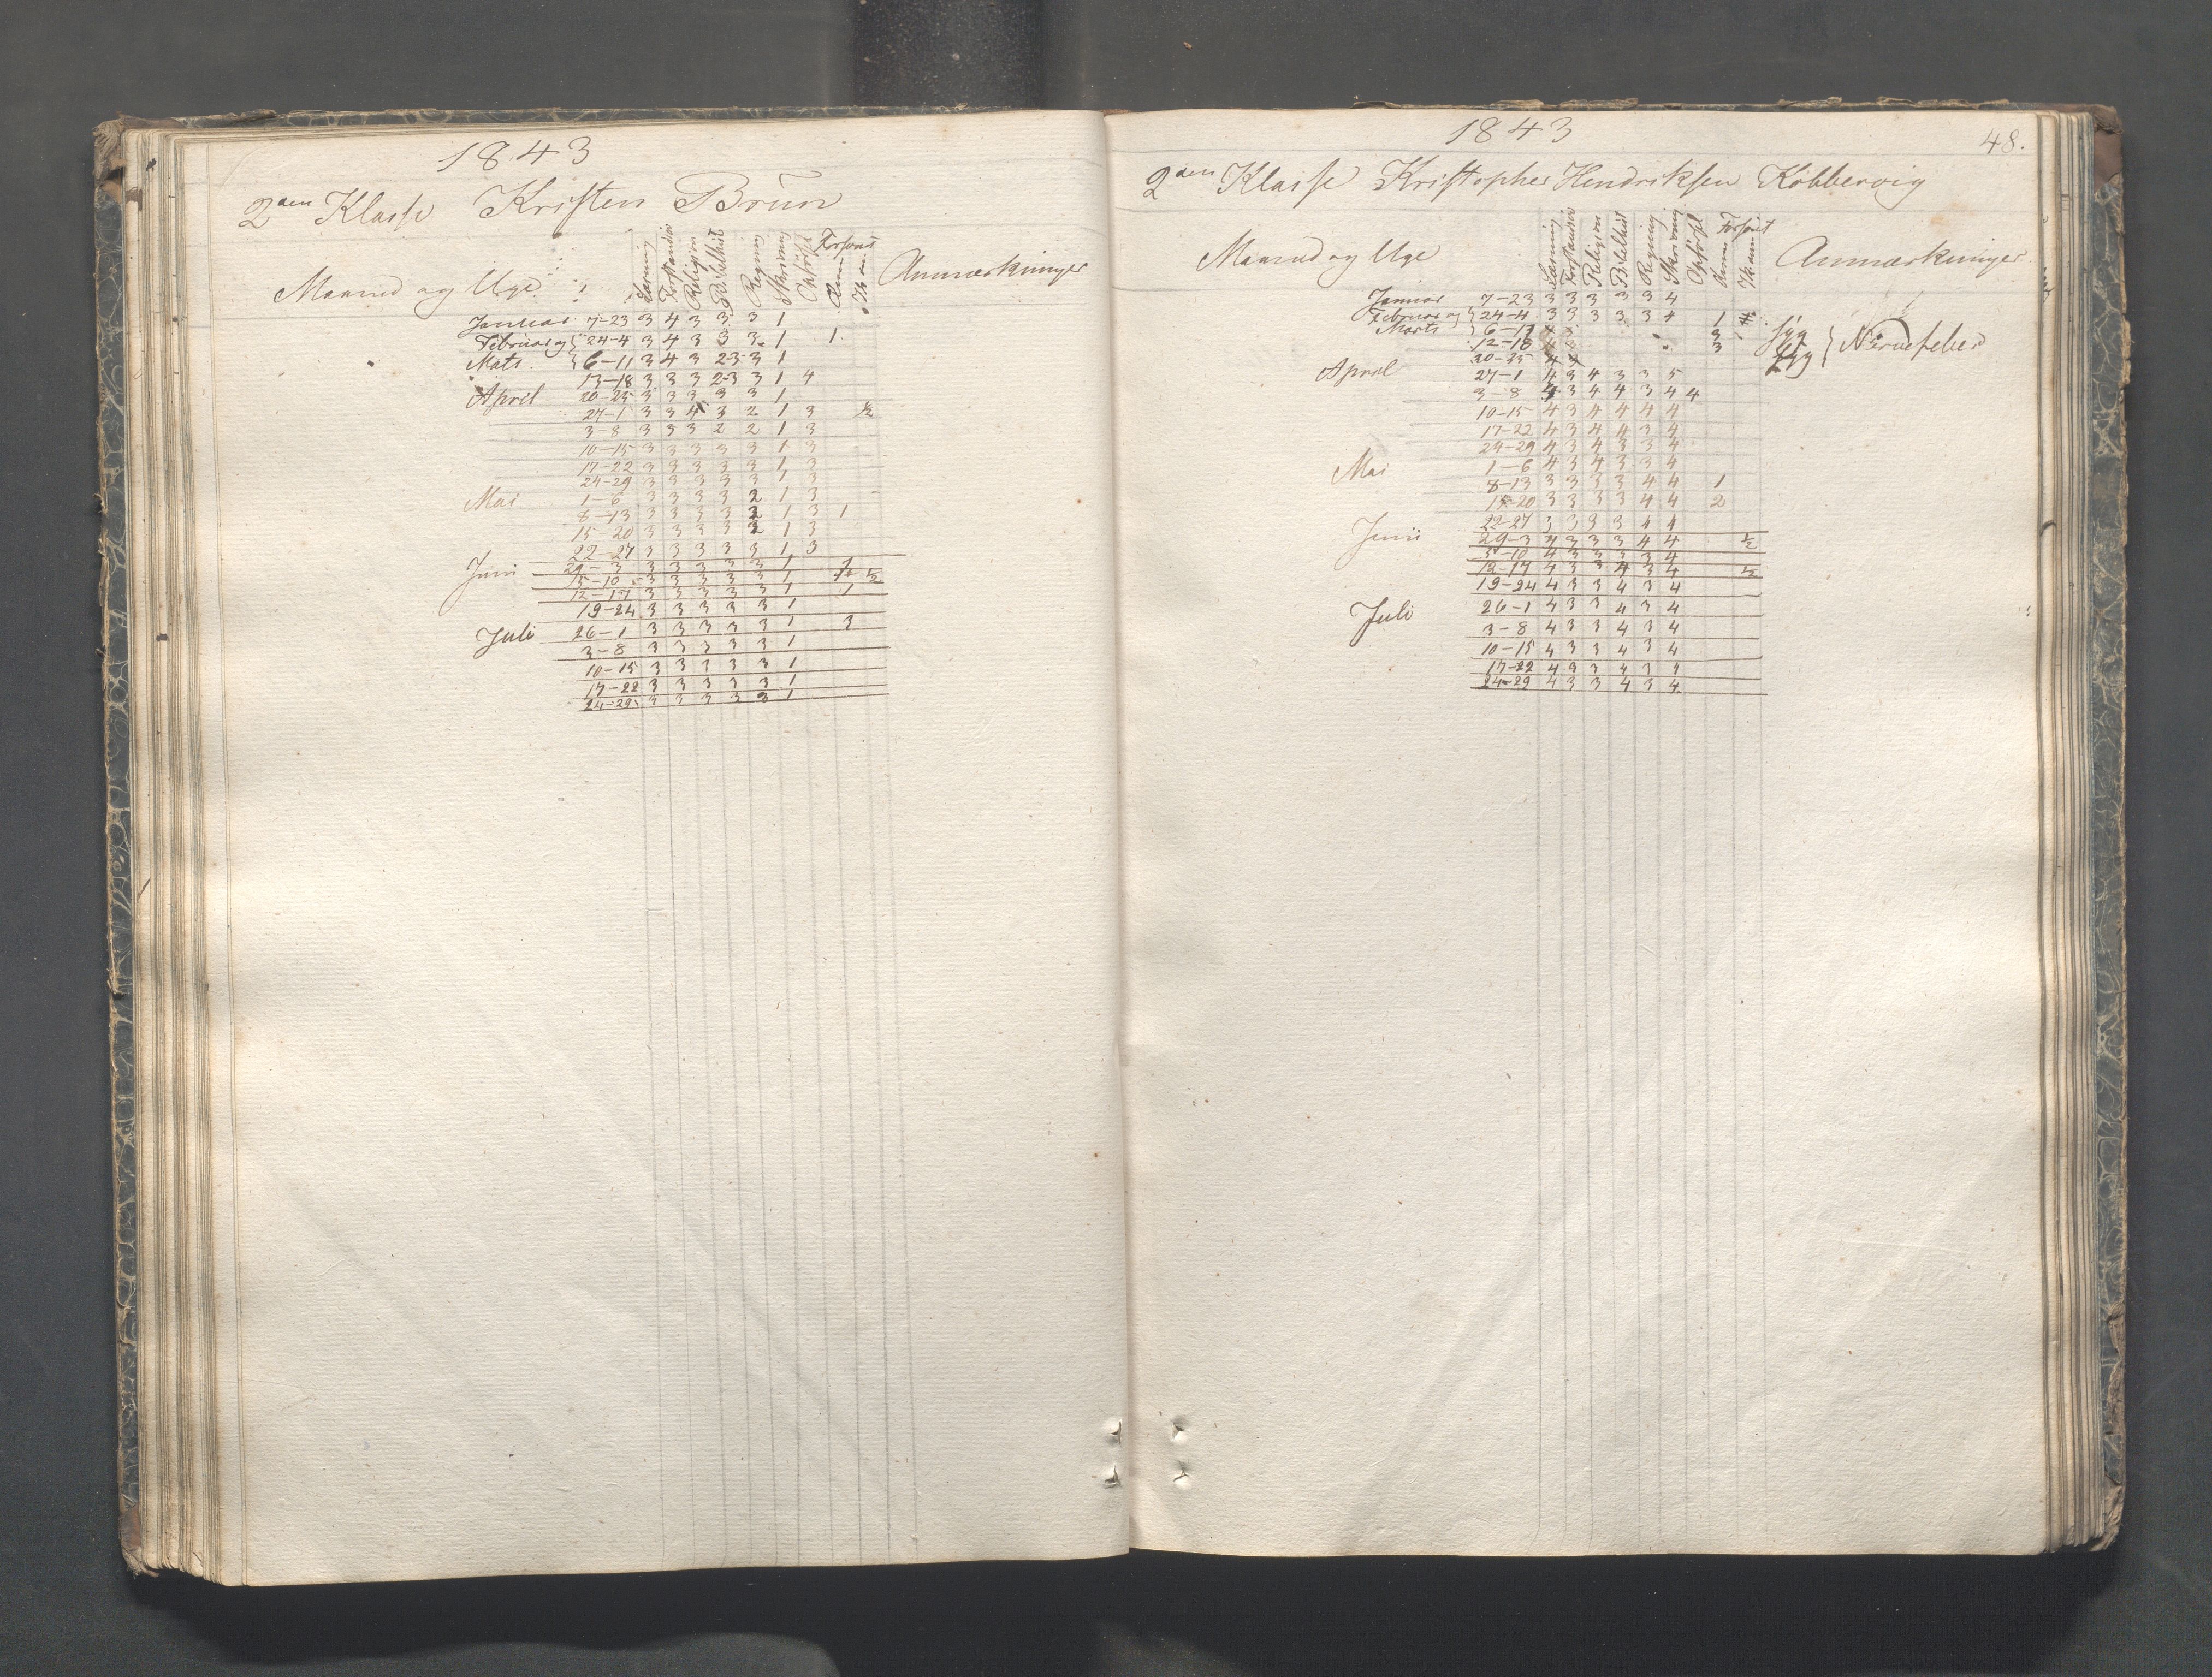 1843
2den Klasse Kristen Brun
Maaned og Uge Læsning Forstand Religion Bibelhist Regning Skrivning Opførsel Forsømt Anmærkninger
Januar 7-23 3 4 3 3 3 1
Februar og 24-4 3 4 3 3 3 1 1
Mats 6-11 3 4 3 2-3 3 1
13-18 3 3 3 2-3 3 1 4
April 20-25 3 3 3 3 3 1
27-1 3 3 4 3 2 1 3 ½
3-8 3 3 3 2 2 1 3
10-15 3 3 3 3 3 1 3
17-22 3 3 3 3 3 1 3
24-29 3 3 3 3 3 1 3
Mai 1-6 3 3 3 3 2 1 3
8-13 3 3 3 3 2 1 3 1
15-20 3 3 3 3 2 1 3
22-27 3 3 3 3 3 1 3
Juni 29-3 3 3 3 3 3 1 1
5-10 3 3 3 3 3 1 ½
12-17 3 3 3 3 3 1 1
19-24 3 3 3 3 3 1
Juli 26-1 3 3 3 3 3 1 3
3-8 3 3 3 3 3 1
10-15 3 3 3 3 3 1
17-22 3 3 3 3 3 1
24-29 3 3 3 3 3 1
1843 48.
2den Klasse Kristopher Hendriksen Kobbervig
Maaned og Uge Læsning Forstand Religion Bibelhist Regning Skrivning Opførsel Forsømt Anmærkninger
Januar 7-23 3 3 3 3 3 4
Februar og 24-4 3 3 3 3 3 4 1
Marts 6-11 x x 3 syg
12-18 3 syg } Nervefeber
20-25 4 x
April 27-1 4 3 4 3 3 5
3-8 4 3 4 4 3 4 4
10-15 4 3 4 4 4 4
17-22 4 3 4 4 3 4
24-29 4 3 4 3 3 4
Mai 1-6 4 3 4 3 3 4
8-13 3 3 3 3 4 4 1
15-20 3 3 3 3 4 4 2
22-27 3 3 3 3 4 4
Juni 29-3 4 3 3 3 4 4 ½
5-10 4 3 3 3 3 4
12-17 4 3 3 4 3 4 ½
19-24 4 3 3 4 3 4
Juli 26-1 4 3 3 4 3 4
3-8 4 3 3 4 3 4
10-15 4 3 3 4 3 4
17-22 4 3 3 4 3 4
24-29 4 3 3 4 3 4